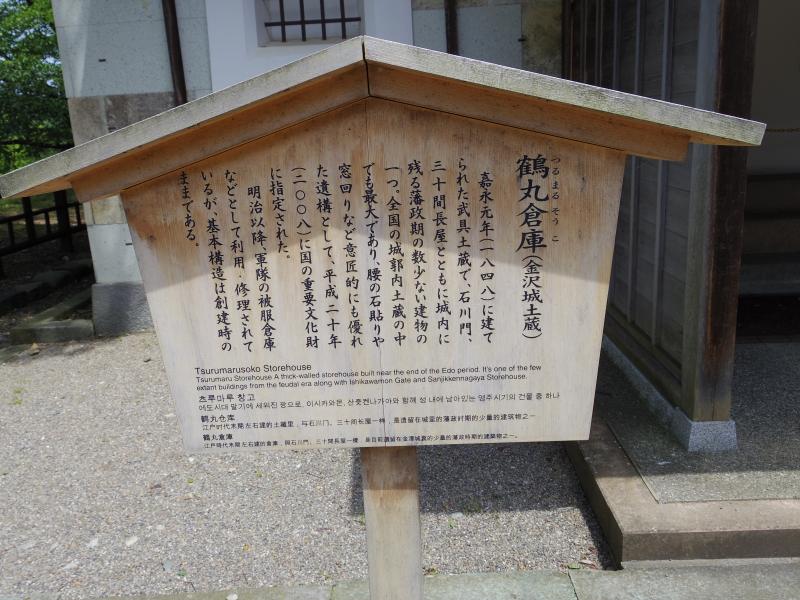 つるまるそうこ
鶴丸倉庫（金沢城土蔵）
嘉永元年（一八四八）に建て
られた武具土蔵で、石川門、
三十間長屋とともに城内に
残る藩政期の数少ない建物の
一つ。全国の城郭内土蔵の中
でも最大であり、腰の石貼りや
窓回りなど意匠的にも優れ
た遺構として、平成二十年
（二〇〇八）に国の重要文化財
に指定された。
明治以降、軍隊の被服倉庫
などとして利用・修理されて
いるが、基本構造は創建時の
ままである。
Tsurumarusoko Storehouse
Tsurumaru Storehouse A thick-walled storehouse built near the end of the Edo period. It's one of the few
extant buildings from the feudal era along with Ishikawamon Gate and Sanjikkennagaya Storehouse.
츠루마루 창고
에도시대 말기에 세워진 광으로, 이시카와몬, 산쥿켄나가야와 함께 성 내에 남아있는 영주시기의 건물 중 하나
鹤丸仓库
江户时代末期左右建的土藏里，与石川门、三十间长屋一样，是遗留在城里的藩政时期的少量的建筑物之一
鶴丸倉庫
江戶時代末期左右建的倉庫，與石川門、三十間長屋一樣，是目前遺留在金澤城裏的少量的藩政時期的建築物之一。